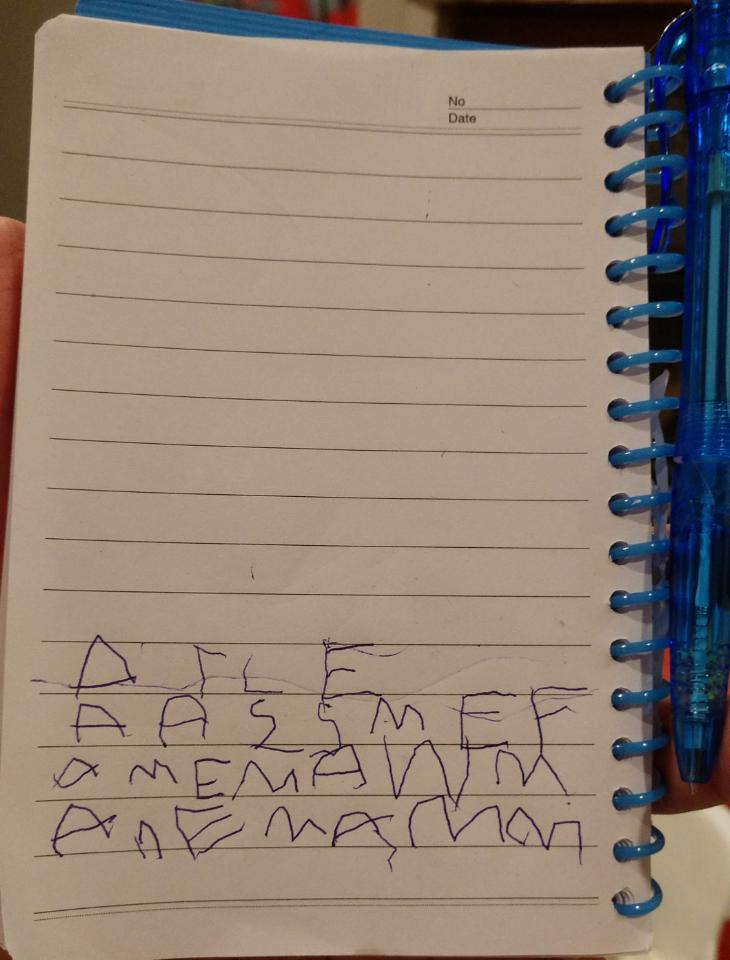 No
Date
A T L E
A A S S M E F
a m E M A W M
A n E M A M a n